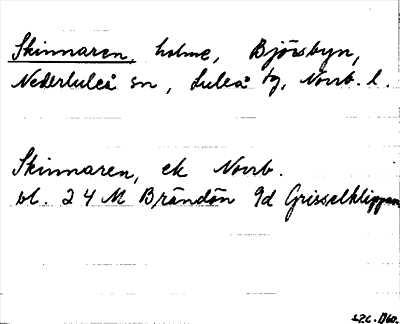 Skinnaren, holme, Björsbyn,
Nederluleå sn, Luleå tg, Norrb. l.
Skinnaren, ek Norrb.
bl. 24 M Brändön 9d Grisselklippan
1960.